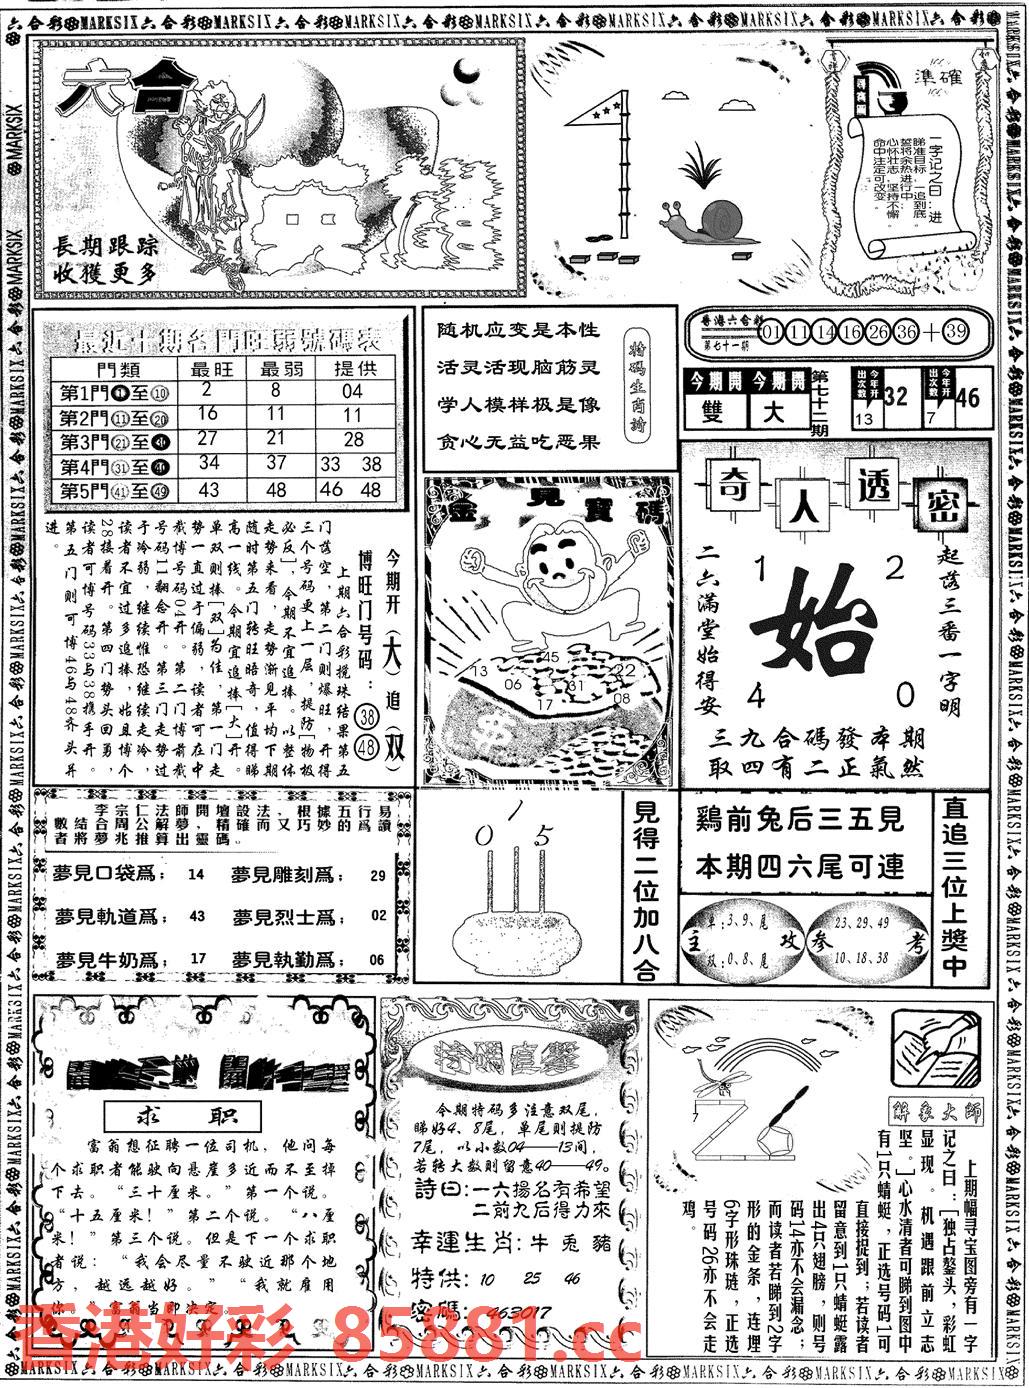 六合彩MARKSIX六合彩MARKSIX六合彩MARKSIX六合彩MARKSIX
六合
長期跟踪
收獲更多
準確
一字记之曰：进
睇准目标，一追到底。
誓将余热进行中：
心怀壮志，坚持不懈，
命中注定可改变。
最近十期各門旺弱號碼表
門類 最旺 最弱 提供
第1門①至⑩ 2 8 04
第2門⑪至⑳ 16 11 11
第3門㉑至㉚ 27 21 28
第4門㉛至㊵ 34 37 33 38
第5門㊶至㊾ 43 48 46 48
随机应变是本性
活灵活现脑筋灵
学人模样极是像
贪心无益吃恶果
特码生肖詩
香港六合彩
第七十一期
01 11 14 16 26 36 + 39
今期開 今期開
雙 大
第七十二期
今年开出次数 13 32
今年开出次数 7 46
今期开（大）追（双）
博旺门号码：㊳㊽
上期六合彩搅珠结果第五
门落空，第二门则爆旺，开得
三个号码更上一层，提防[物极
必反]，今期不宜追捧。以整体
走势来看，走势渐见平均下期
随时第五门转旺唔奇，值得睇
高一线。今期宜追捧[大]开
单双则捧[双]为佳，第一门走
势一直过于偏弱，读者可在中
截博号码04开。第二门博前截
号码11翻念开。第三门走势过
于冷弱，继续惟恐继续走冷，
读者不宜过多追捧，姑且博个
28接着开。第四门势头回勇，
读者可博号码33与38携手开，
第五门则可博46与48齐头并
进。
金見寶碼
13 06 45 31 17 22 08
奇人透密
二六滿堂始得安
1 2
始
4 0
起落三番一字明
三九合碼發本期
取四有二正氣然
李宗仁法師開壇設法，根據五行易
數結合周公解夢，精確而又巧妙的爲讀
者將夢兆推算出靈碼。
夢見口袋爲； 14 夢見雕刻爲； 29
夢見軌道爲； 43 夢見烈士爲； 02
夢見牛奶爲； 17 夢見執勤爲； 06
0 1 5
見得二位加八合
鷄前兔后三五見
本期四六尾可連
直追三位上獎中
主攻
单:3、9、尾
双:0、8、尾
参考
23、29、49
10、18、38
求 职
富翁想征聘一位司机，他问每
个求职者能驶向悬崖多近而不至掉
下去。“三十厘米。”第一个说。
“十五厘米！”第二个说。“八厘
米！”第三个说。但是下一个求职
者说：“我会尽量不驶近那个地
方，越远越好。”“我就雇用
你。”富翁当即决定。
特碼直擊
今期特码多注意双尾，
睇好4、8尾，单尾则提防
7尾，以小数04——13间，
若转大数则留意40——49。
詩曰:一六揚名有希望
二前九后得力來
幸運生肖:牛 兎 豬
特供: 10 25 46
密碼: 463017
解象大師
上期幅寻宝图旁有一字
记之曰：[独占鳌头，彩虹
显现。机遇跟前立志
坚。]心水清者可睇到图中
有1只蜻蜓，正选号码1可
直接捉到；若读者
留意到1只蜻蜓露
出4只翅膀，则号
码14亦不会漏念；
而读者若睇到C字
形的金条，连埋
6字形珠琏，正选
号码26亦不会走
鸡。
香港好彩 85881.cc
六合彩MARKSIX六合彩MARKSIX六合彩MARKSIX六合彩MARKSIX